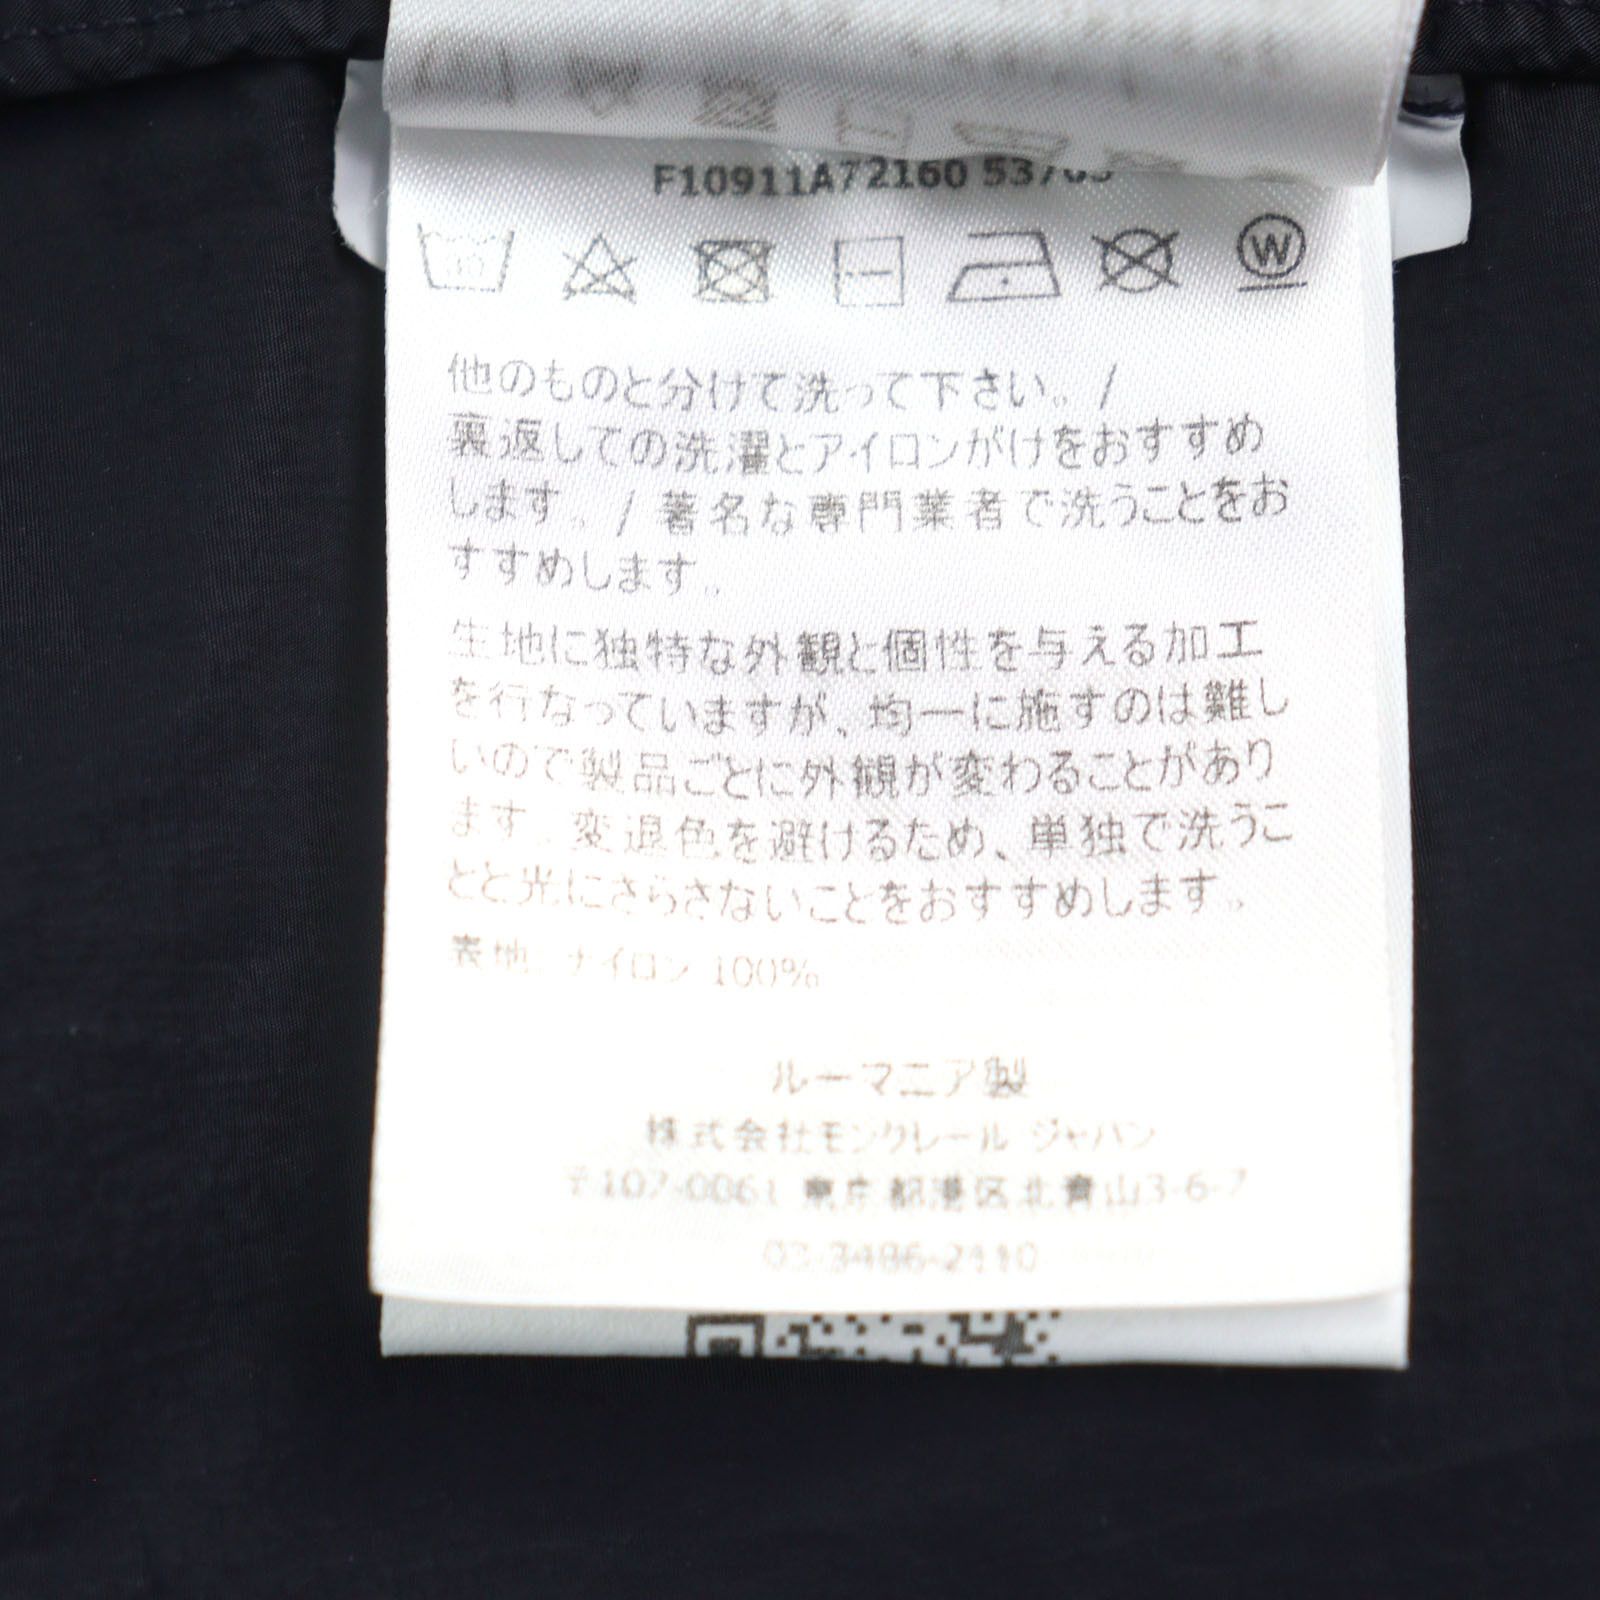 F10911A72160
30
W
他のものと分けて洗って下さい。/
裏返しての洗濯とアイロンがけをおすすめ
します。/ 著名な専門業者で洗うことをお
すすめします。
生地に独特な外観と個性を与える加工
を行なっていますが、均一に施すのは難し
いので製品ごとに外観が変わることがあり
ます。変退色を避けるため、単独で洗うこ
とと光にさらさないことをおすすめします。
表地 ナイロン 100%
ルーマニア製
株式会社モンクレール ジャパン
〒107-0061 東京都港区北青山3-6-7
03-3486-2110